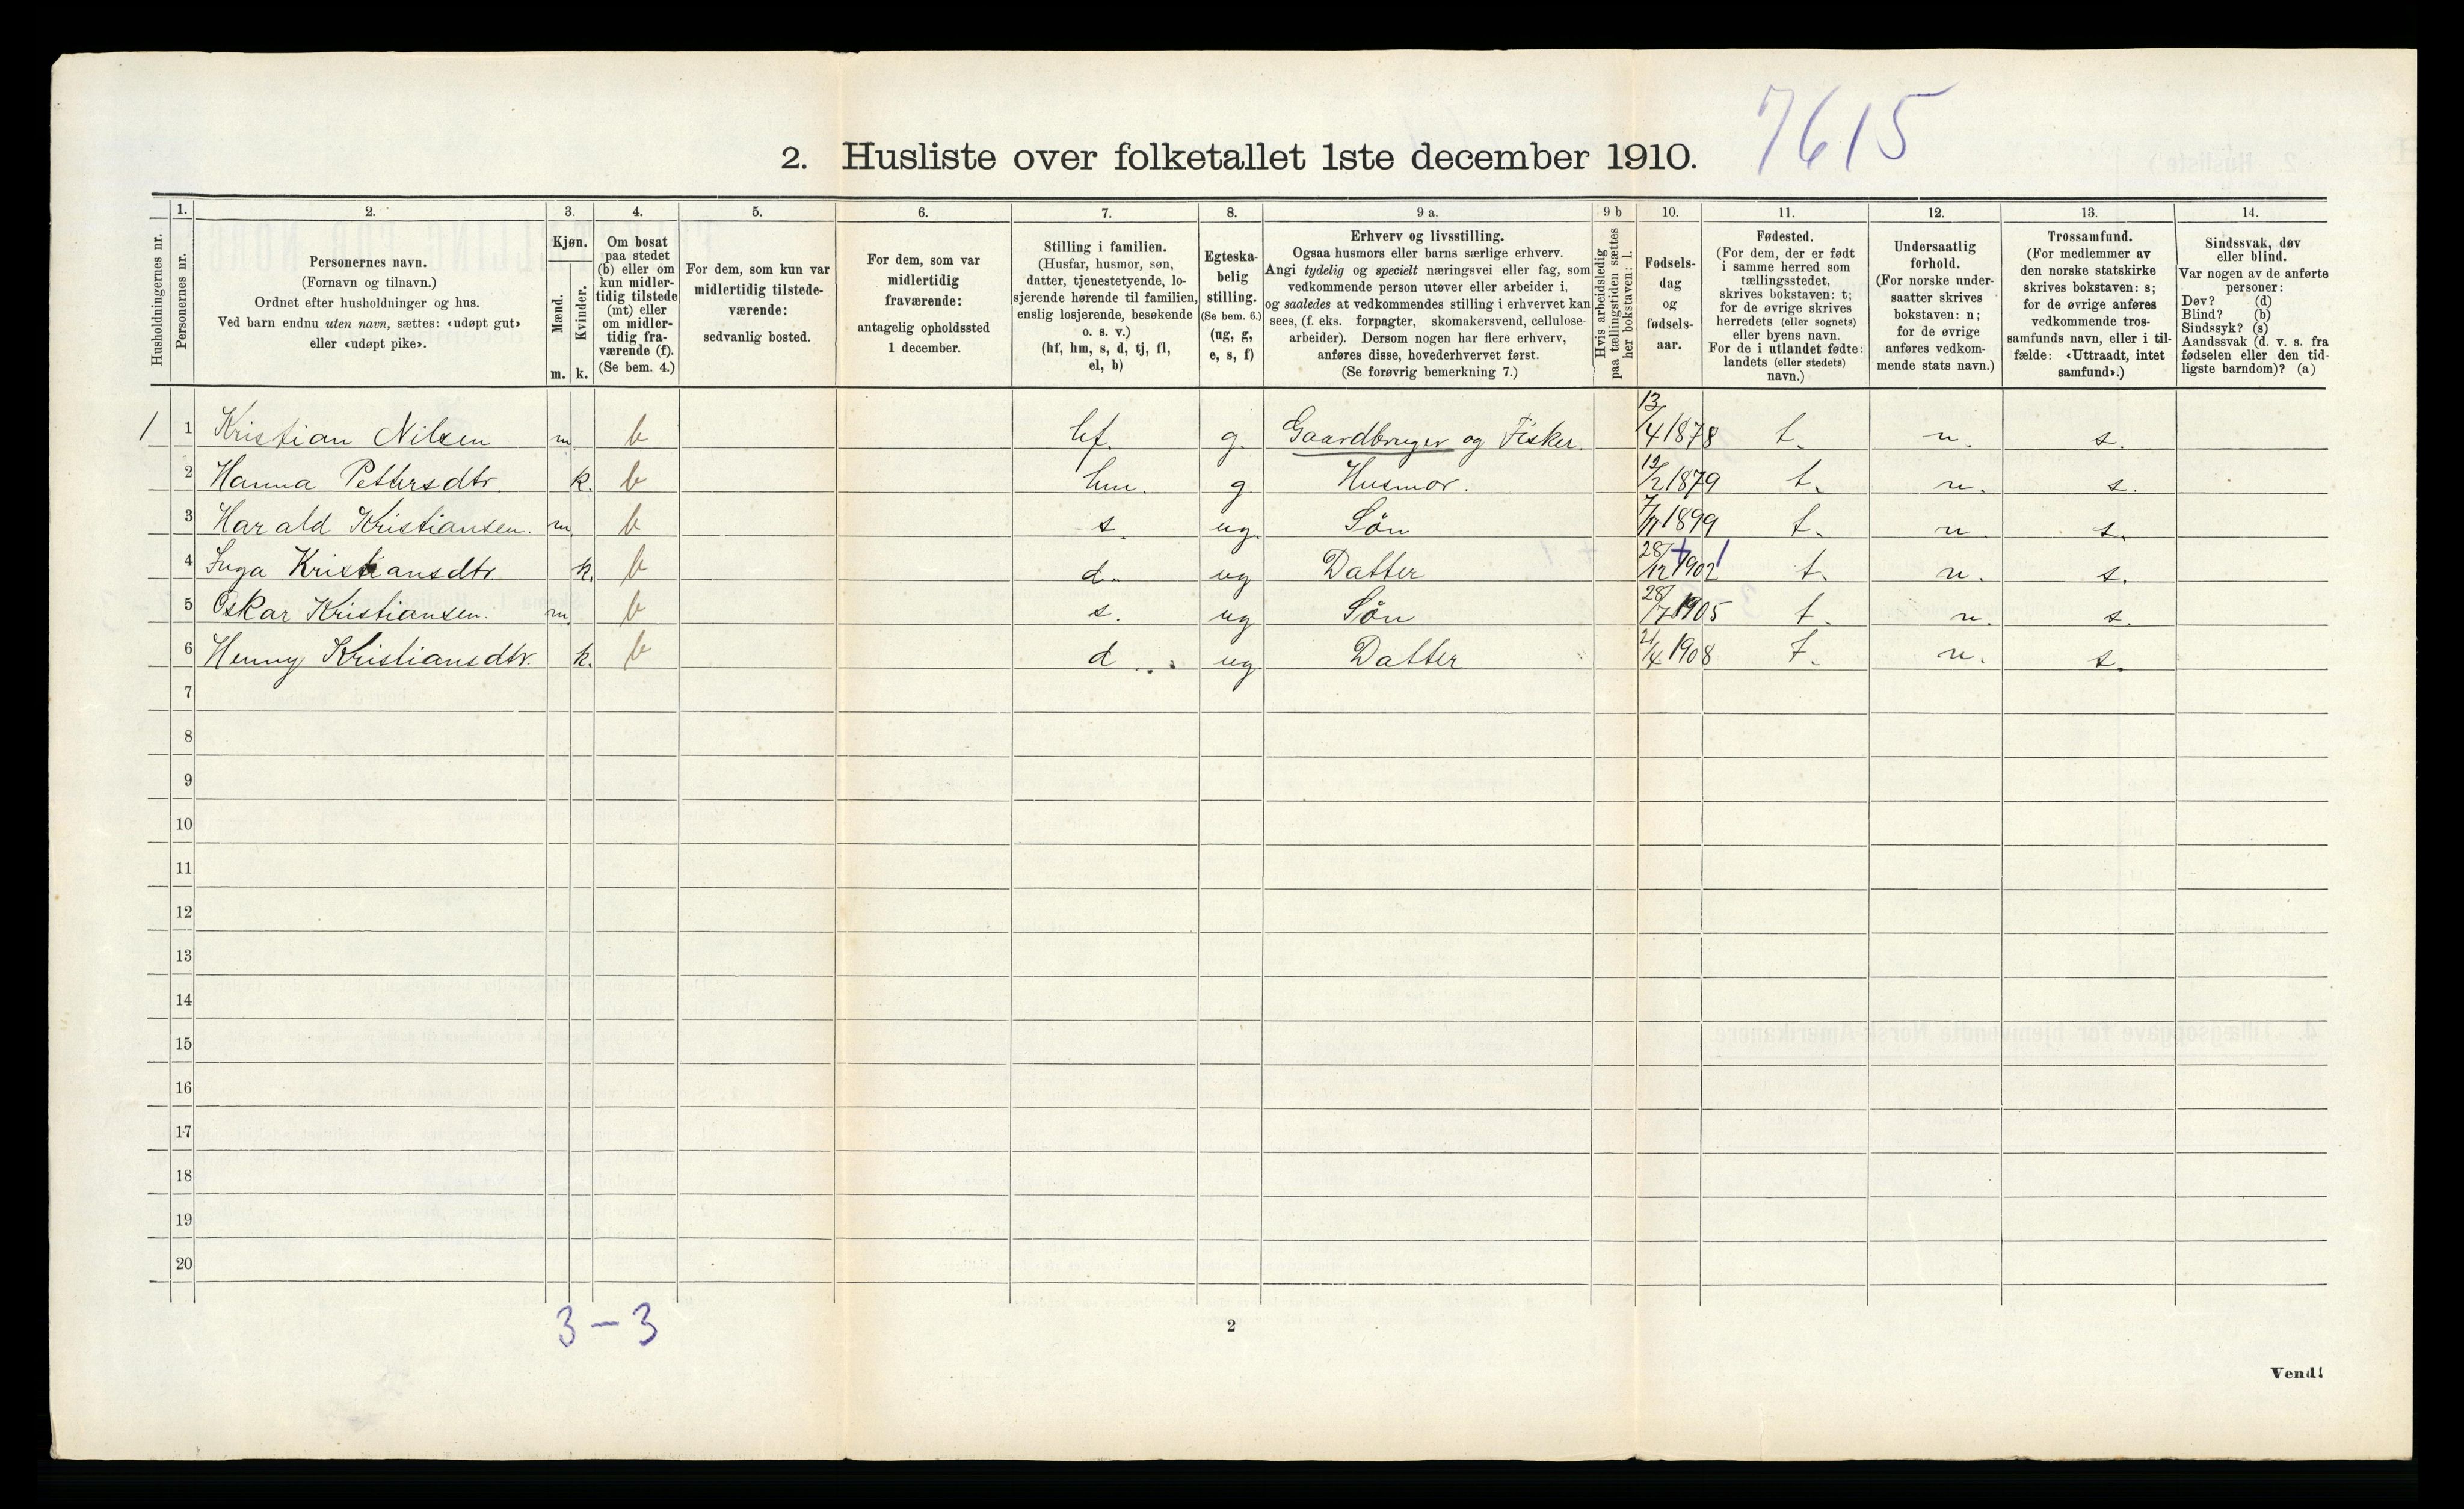 7615
2. Husliste over folketallet 1ste december 1910.
Husholdningernes nr.
1.
Personernes nr.
2.
Personernes navn.
(Fornavn og tilnavn.)
Ordnet efter husholdninger og hus.
Ved barn endnu uten navn, sættes: «udøpt gut»
eller «udøpt pike».
3.
Kjøn.
Mænd.
Kvinder.
m. k.
4.
Om bosat
paa stedet
(b) eller om
kun midler-
tidig tilstede
(mt) eller
om midler-
tidig fra-
værende (f).
(Se bem. 4.)
5.
For dem, som kun var
midlertidig tilstede-
værende:
sedvanlig bosted.
6.
For dem, som var
midlertidig
fraværende:
antagelig opholdssted
1 december.
7.
Stilling i familien.
(Husfar, husmor, søn,
datter, tjenestetyende, lo-
sjerende hørende til familien,
enslig losjerende, besøkende
o. s. v.)
(hf, hm, s, d, tj, fl,
el, b)
8.
Egteska-
belig
stilling.
(Se bem. 6.)
(ug, g,
e, s, f)
9 a.
Erhverv og livsstilling.
Ogsaa husmors eller barns særlige erhverv.
Angi tydelig og specielt næringsvei eller fag, som
vedkommende person utøver eller arbeider i,
og saaledes at vedkommendes stilling i erhvervet kan
sees, (f. eks. forpagter, skomakersvend, cellulose-
arbeider). Dersom nogen har flere erhverv,
anføres disse, hovederhvervet først.
(Se forøvrig bemerkning 7.)
9 b
Hvis arbeidsledig
paa tællingstiden sættes
her bokstaven: l.
10.
Fødsels-
dag
og
fødsels-
aar.
11.
Fødested.
(For dem, der er født
i samme herred som
tællingsstedet,
skrives bokstaven: t;
for de øvrige skrives
herredets (eller sognets)
eller byens navn.
For de i utlandet fødte:
landets (eller stedets)
navn.)
12.
Undersaatlig
forhold.
(For norske under-
saatter skrives
bokstaven: n;
for de øvrige
anføres vedkom-
mende stats navn.)
13.
Trossamfund.
(For medlemmer av
den norske statskirke
skrives bokstaven: s;
for de øvrige anføres
vedkommende tros-
samfunds navn, eller i til-
fælde: «Uttraadt, intet
samfund».)
14.
Sindssvak, døv
eller blind.
Var nogen av de anførte
personer:
Døv? (d)
Blind? (b)
Sindssyk? (s)
Aandssvak (d. v. s. fra
fødselen eller den tid-
ligste barndom)? (a)
1 1 Kristian Nilsen m b hf. g. Gaardbruger og Fisker. 13/4 1878 t. n. s.
2 Hanna Pettersdtr. k. b hm. g Husmor. 12/2 1879 t. n. s.
3 Harald Kristiansen. m b s. ug. Søn 7/11 1899 t. n. s.
4 Inga Kristiansdtr. k. b d. ug Datter 28/12 1902 t. n. s.
5 Oskar Kristiansen. m. b s. ug Søn 28/7 1905 t. n. s.
6 Henny Kristiansdtr. k. b d. ug. Datter 21/4 1908 t. n. s.
7
8
9
10
11
12
13
14
15
16
17
18
19
20
3 – 3
2
Vend!